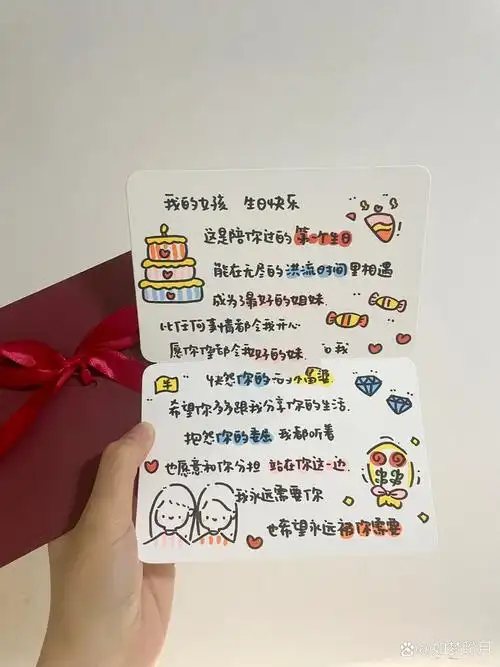 我的女孩 生日快乐
这是陪你过的第一个生日
能在无尽的洪流时间里相遇
成为了最好的姐妹.
比任何事情都令我开心
愿你 都 我好的妹. 我
牛
你的 小富婆
希望你多多跟我分享你的生活.
抱怨你的委屈 我都听着
也愿意和你分担 站在你这一边.
我永远需要你
也希望永远被你需要